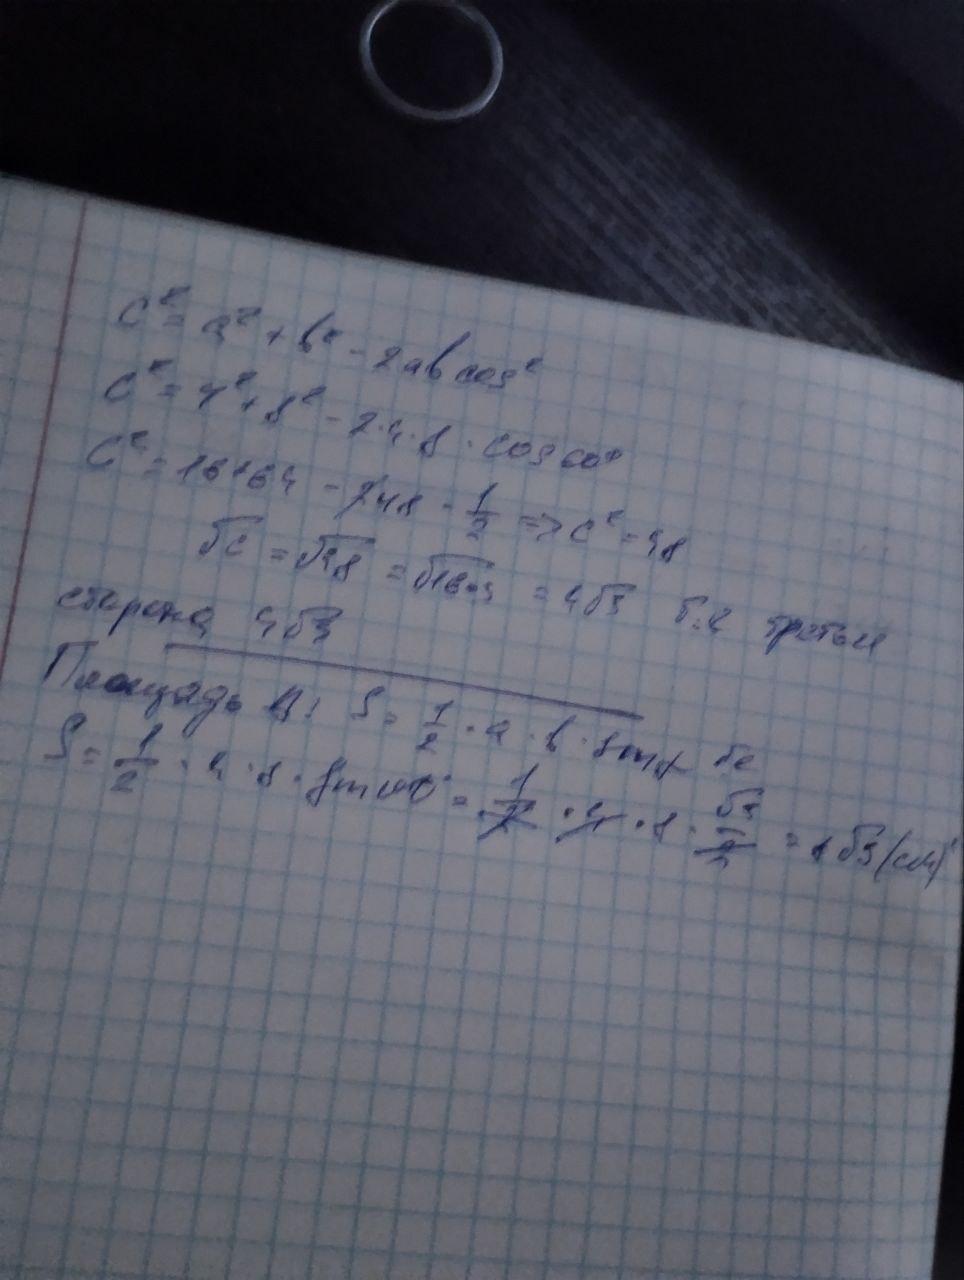 c² = a² + b² - 2ab cos²
c² = 4² + 8² - 2·4·8 · cos 60°
c² = 16+64 - 2·4·8 · 1/2 => c² = 48
√c = √48 = √16·3 = 4√3 т.е третья
сторона 4√3
Площадь Δ: S = 1/2 · a · b · sin
S = 1/2 · 4 · 8 · sin 60° = 1/2 · 4 · 8 · √3/2 = 8√3 (см)²